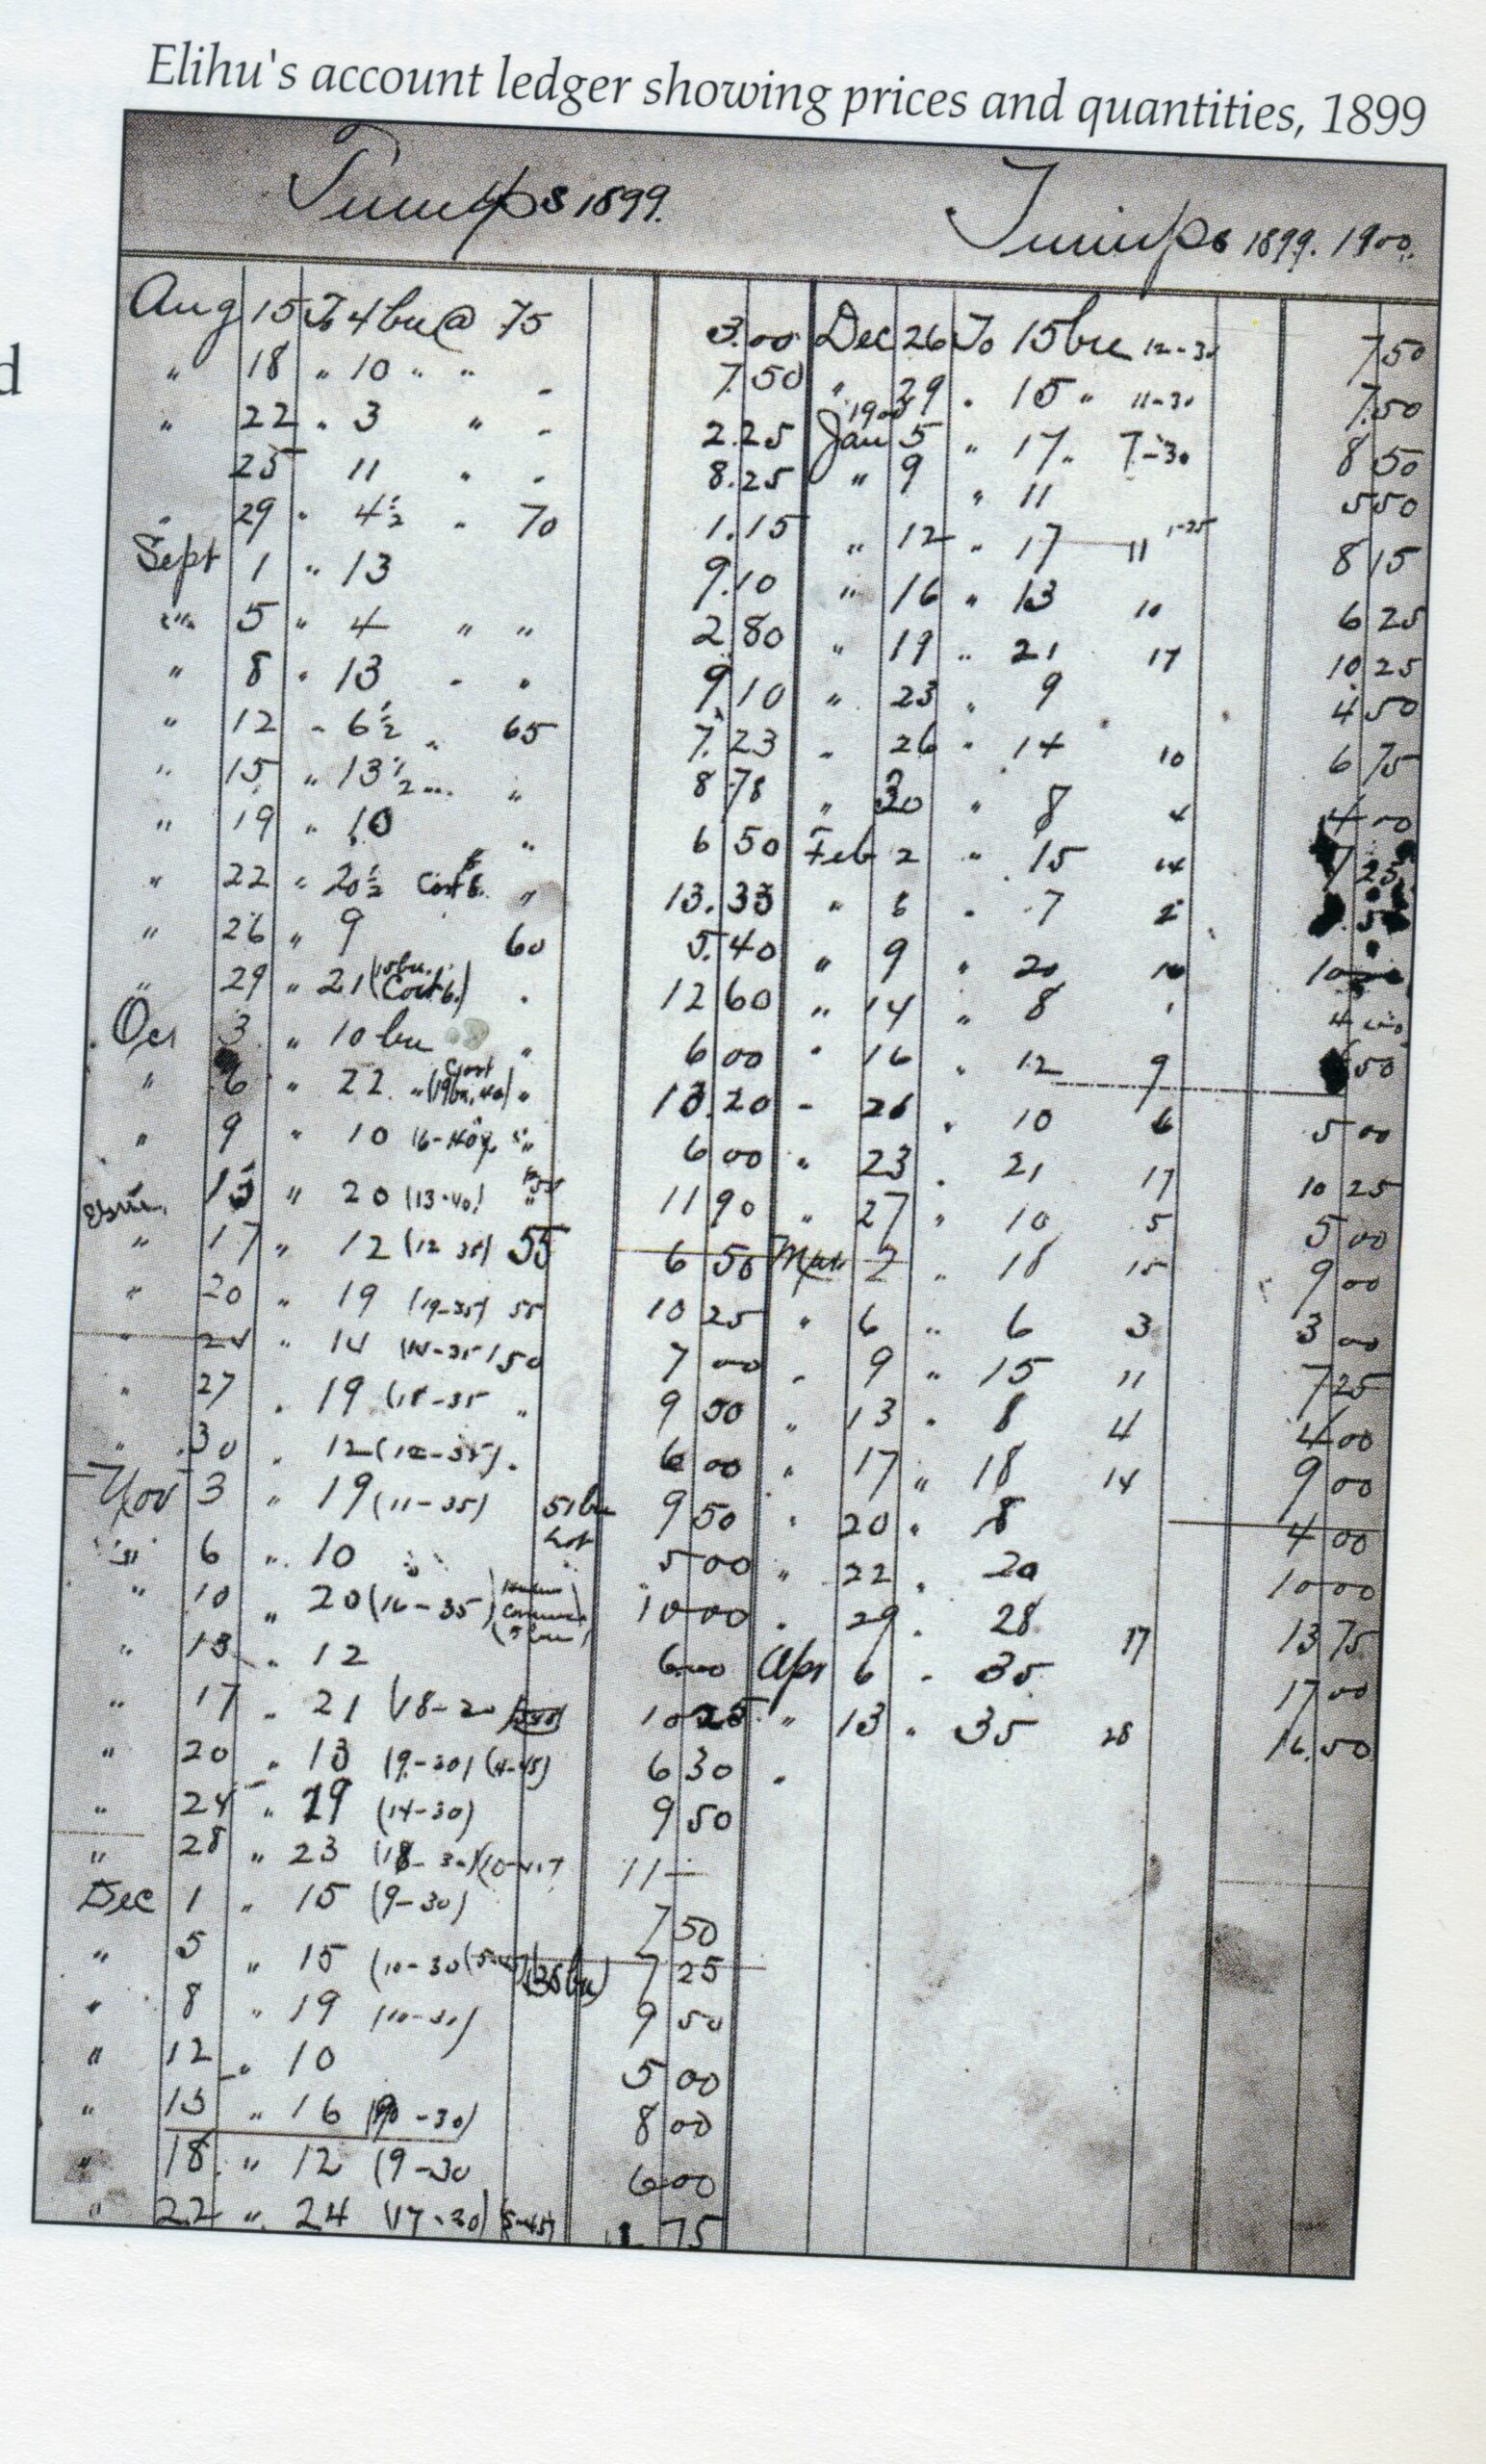 d
Elihu's account ledger showing prices and quantities, 1899
Turnips 1899.
Aug 15 To 4 bu @ 75 3.00
" 18 " 10 " " - 7.50
" 22 " 3 " - 2.25
25 11 " - 8.25
" 29 " 4½ " 70 1.15
Sept 1 " 13 9.10
" 5 " 4 " " 2 80
" 8 " 13 - " 9 10
" 12 " 6½ " 65 7.23
" 15 " 13½ " " 8 78
" 19 " 10 " 6 50
" 22 " 20½ " 13.33
" 26 " 9 60 5.40
" 29 " 21 (15 bu. 12 60
Oct 3 " 10 bu " 6 00
" 6 " 22 " (19 bu, 40) " 13.20
" 9 " 10 6 00
" 13 " 20 (13-40) " 11 90
" 17 " 12 (12 35) 55 6 50
" 20 " 19 (19-35) 55 10 25
" 24 " 14 (14-35) 50 7 00
" 27 " 19 (18-35 " 9 50
" 30 " 12 (12-35) " 6 00
Nov 3 " 19 (11-35) 51 bu 9 50
" 6 " 10 " 5 00
" 10 " 20 (16-35) 10 00
" 13 " 12 6 00
" 17 " 21 10 25
" 20 " 13 (9-30) (4-45) 6 30
" 24 " 19 (14-30) 9 50
" 28 " 23 (18-30) 11 —
Dec 1 " 15 (9-30) 7 50
" 5 " 15 (10-30 (35 bu) 7 25
" 8 " 19 9 50
" 12 " 10 5 00
" 15 " 16 -30) 8 00
" 18 " 12 (9-30 6 00
" 22 " 24 (17-30) (5-45) 75
Turnips 1899. 1900.
Dec 26 To 15 bu 12-30 7 50
" 29 " 15 " 11-30 7.50
1900
Jan 5 " 17 " 7-30 8 50
" 9 " 11 5 50
" 12 " 17 — 11 1-25 8 15
" 16 " 13 10 6 25
" 19 " 21 17 10 25
" 23 " 9 4 50
" 26 " 14 10 6 75
" 30 " 8 4 4 00
Feb 2 " 15 14 7 25
" 6 " 7 2
" 9 " 20 10 10 00
" 14 " 8 4 00
" 16 " 12 9 50
- 20 " 10 6 5 00
" 23 " 21 17 10 25
" 27 " 10 5 5 00
Mar 2 " 18 15 9 00
" 6 " 6 3 3 00
" 9 " 15 11 7 25
" 13 " 8 4 4 00
" 17 " 18 14 9 00
" 20 " 8 4 00
" 22 " 20 10 00
" 29 " 28 17 13 75
Apr 6 " 35 17 00
" 13 " 35 28 16.50
"